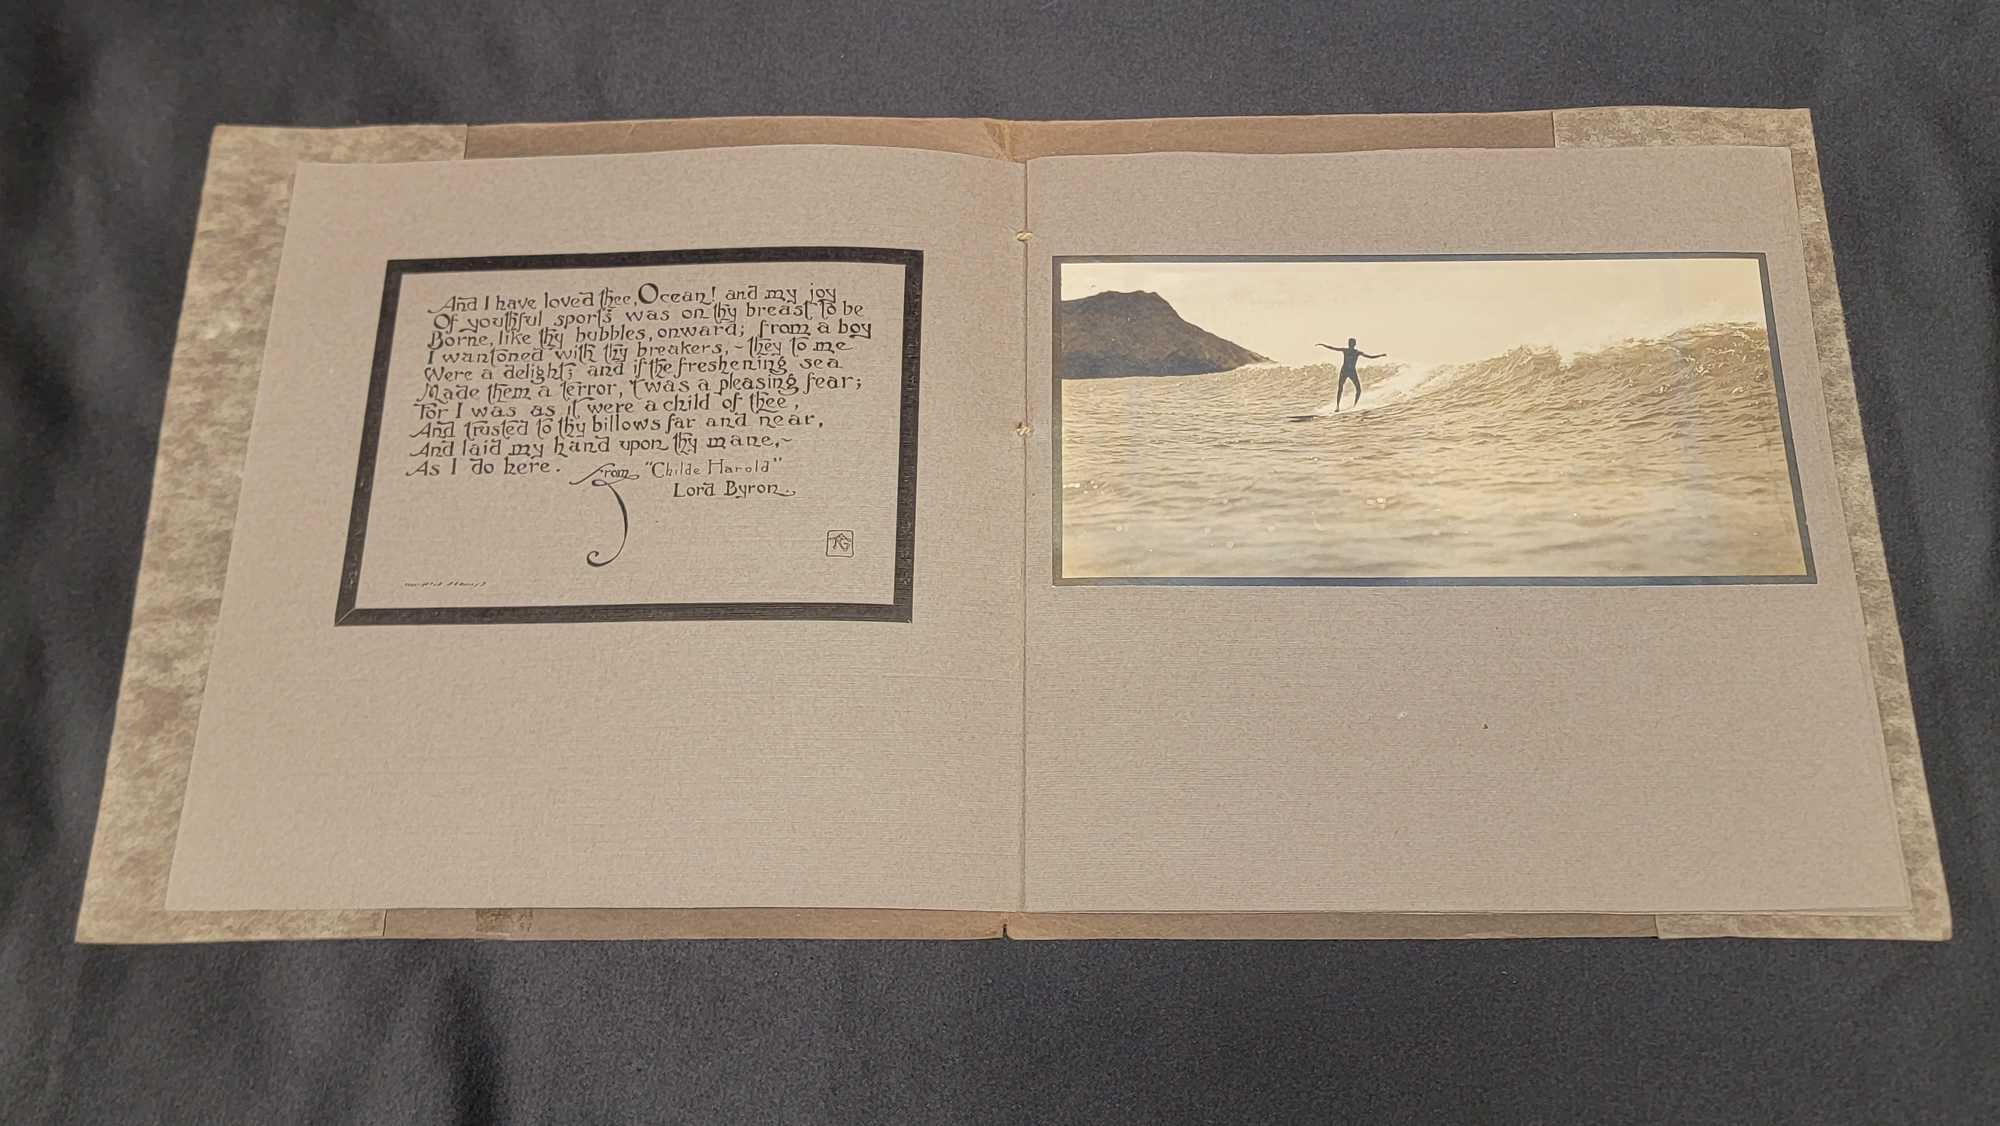 And I have loved thee, Ocean! and my joy
Of youthful sports was on thy breast to be
Borne, like thy bubbles, onward; from a boy
I wantoned with thy breakers,~they to me
Were a delight; and if the freshening sea
Made them a terror, 't was a pleasing fear;
For I was as it were a child of thee,
And trusted to thy billows far and near,
And laid my hand upon thy mane,~
As I do here.
From "Childe Harold"
Lord Byron.